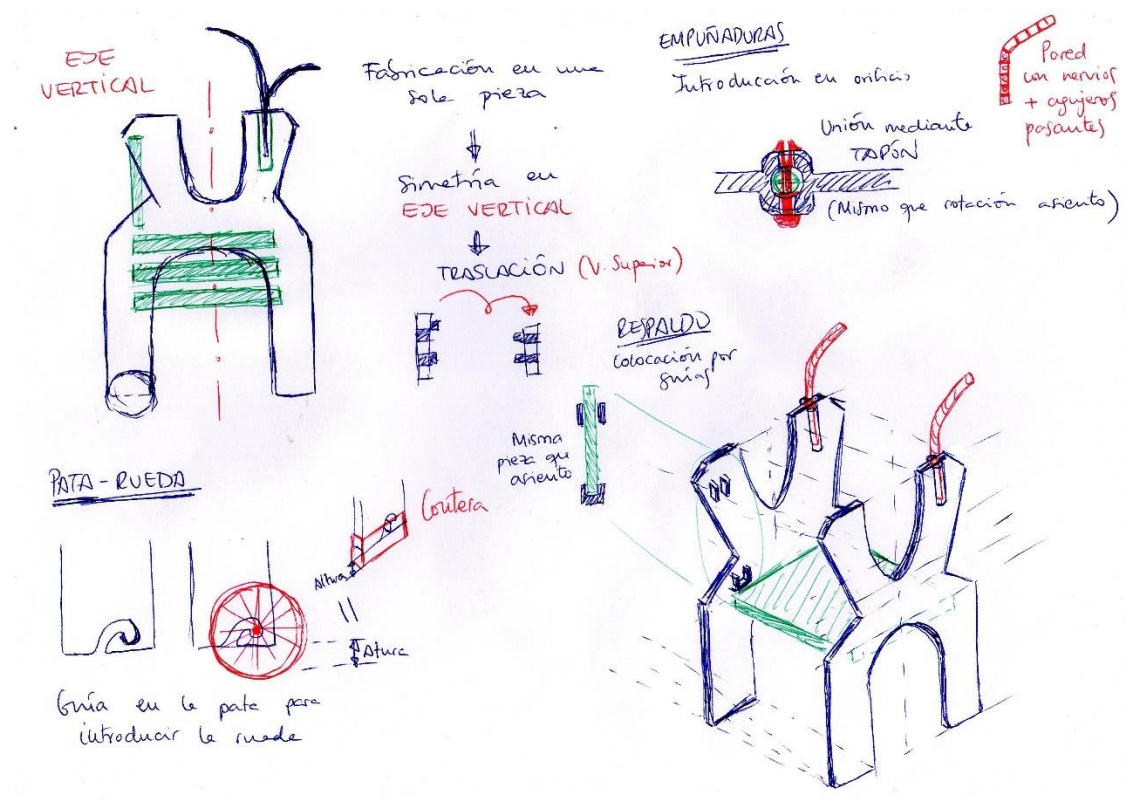 EJE
VERTICAL
Fabricación en una
sola pieza
Simetría en
EJE VERTICAL
TRASLACIÓN (V. Superior)
EMPUÑADURAS
Introducción en orificio
Pared
con nervios
+ agujeros
pasantes
Unión mediante
TAPÓN
(Mismo que rotación asiento)
RESPALDO
Colocación por
guías
Misma
pieza que
asiento
PATA-RUEDA
Contera
Altura
Altura
Guía en la pata para
introducir la rueda